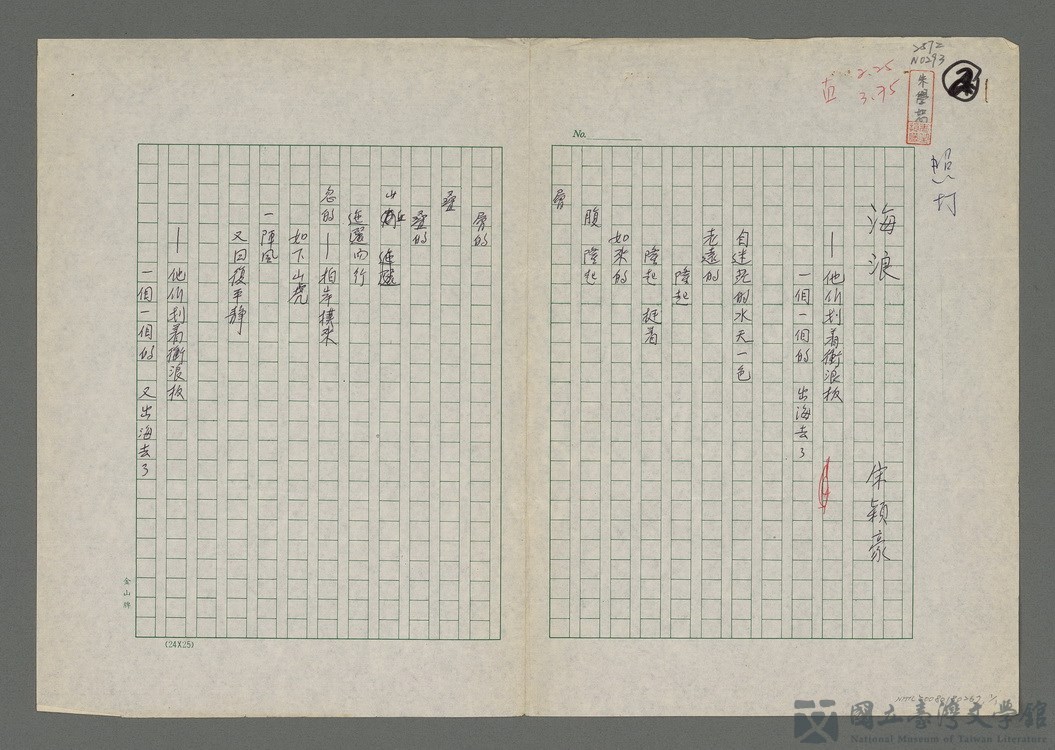 2572
N0293
2.25
3.75
朱學恕
照打
No.
海浪
宋穎豪
—他们划着衝浪板
一個一個的 出海去了
自迷茫的水天一色
老遠的
隆起
隆起 挺着
如來的
腹 隆起
層
層的
疊
疊的
山丘 連綿
迤邐而行
忽的—拍岸撲來
如下山虎
一陣風
又回復平靜
—他们划着衝浪板
一個一個的 又出海去了
金山牌
(24X25)
國立臺灣文學館
National Museum of Taiwan Literature